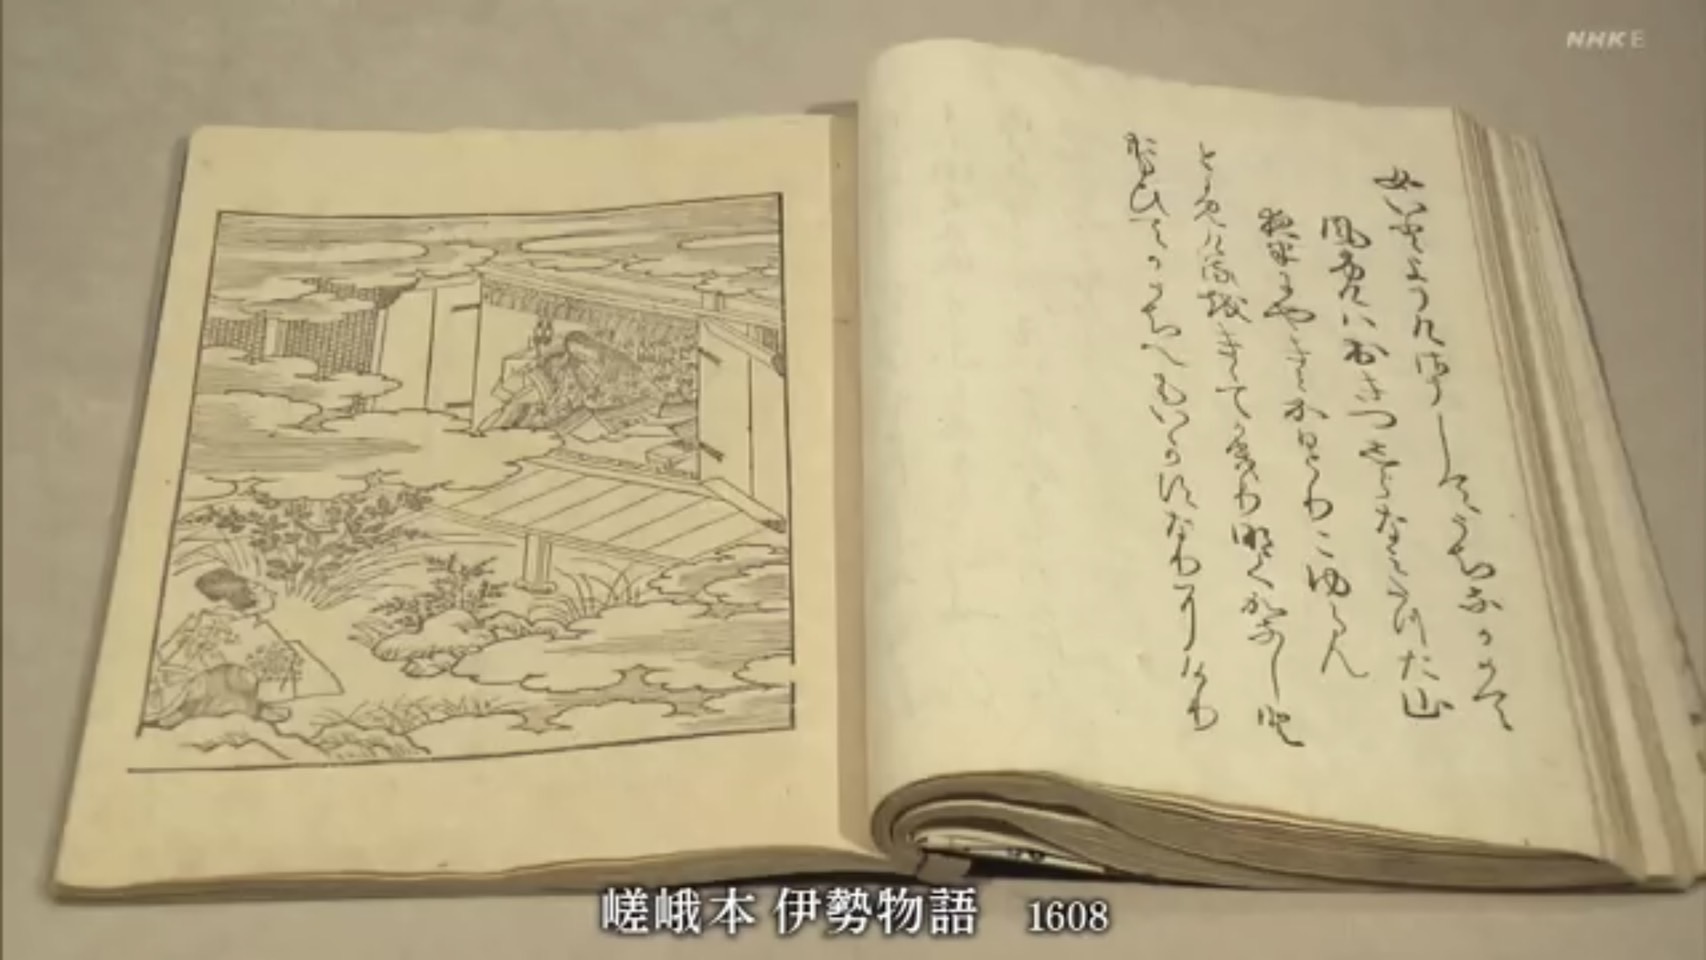 NHK E
女いとようけさうしてうちなかめて
風吹はおきつしらなみたつた山
夜半にやきみかひとりこゆらん
とよみけるをきゝてかきりなくかなしと
おもひてかうちへもいかすなりにけり
嵯峨本 伊勢物語 1608